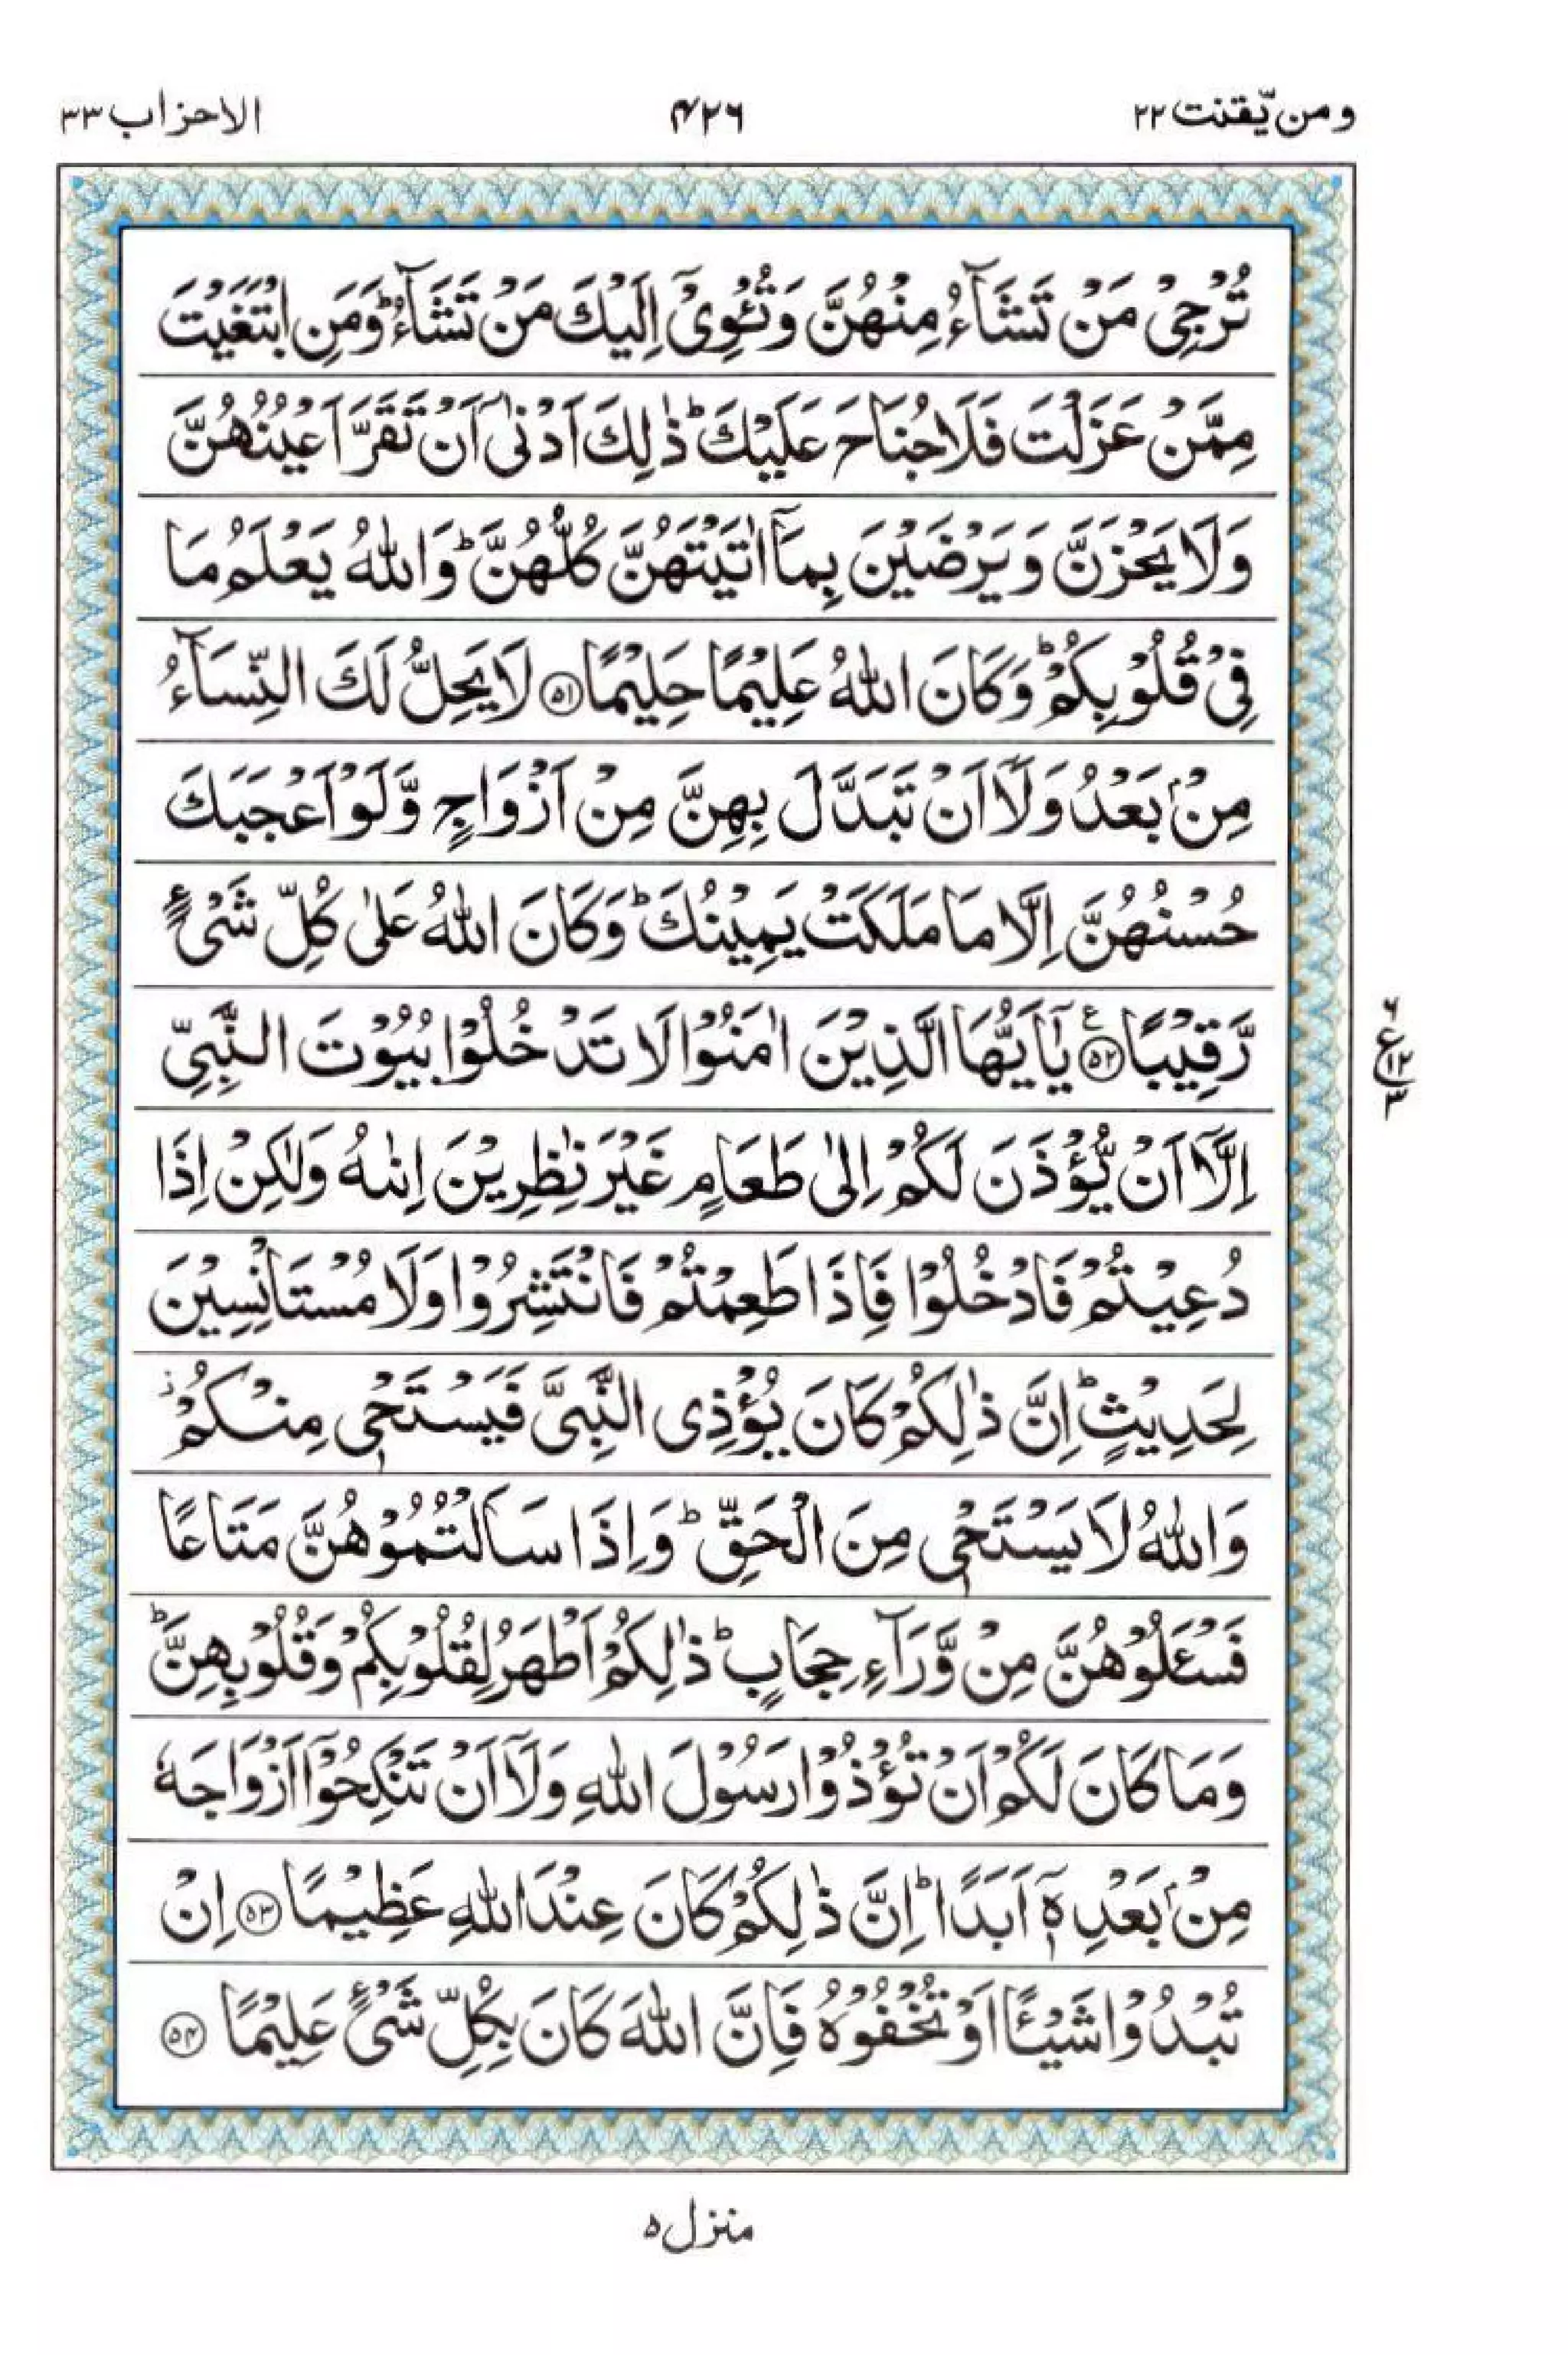 ومن یّقنت ٢٢
۴٢٦
الاحزاب ٣٣
تُرْجِیْ مَنْ تَشَآءُ مِنْهُنَّ وَ تُـْٔوِیْۤ اِلَیْكَ مَنْ تَشَآءُ ؕ وَمَنِ ابْتَغَیْتَ
مِمَّنْ عَزَلْتَ فَلَا جُنَاحَ عَلَیْكَ ؕ ذٰلِكَ اَدْنٰۤی اَنْ تَقَرَّ اَعْیُنُهُنَّ
وَلَا یَحْزَنَّ وَ یَرْضَیْنَ بِمَاۤ اٰتَیْتَهُنَّ كُلُّهُنَّ ؕ وَاللّٰهُ یَعْلَمُ مَا
فِیْ قُلُوْبِكُمْ ؕ وَكَانَ اللّٰهُ عَلِیْمًا حَلِیْمًا ﴿۵۱﴾ لَا یَحِلُّ لَكَ النِّسَآءُ
مِنْۢ بَعْدُ وَلَاۤ اَنْ تَبَدَّلَ بِهِنَّ مِنْ اَزْوَاجٍ وَّلَوْ اَعْجَبَكَ
حُسْنُهُنَّ اِلَّا مَا مَلَكَتْ یَمِیْنُكَ ؕ وَكَانَ اللّٰهُ عَلٰی كُلِّ شَیْءٍ
رَّقِیْبًا ﴿۵۲﴾ ع یٰۤاَیُّهَا الَّذِیْنَ اٰمَنُوْا لَا تَدْخُلُوْا بُیُوْتَ النَّبِیِّ
٦ ع ۱۲ ٣
اِلَّاۤ اَنْ یُّؤْذَنَ لَكُمْ اِلٰی طَعَامٍ غَیْرَ نٰظِرِیْنَ اِنٰىهُ وَلٰكِنْ اِذَا
دُعِیْتُمْ فَادْخُلُوْا فَاِذَا طَعِمْتُمْ فَانْتَشِرُوْا وَلَا مُسْتَاْنِسِیْنَ
لِحَدِیْثٍ ؕ اِنَّ ذٰلِكُمْ كَانَ یُؤْذِی النَّبِیَّ فَیَسْتَحْیٖ مِنْكُمْ ؗ
وَاللّٰهُ لَا یَسْتَحْیٖ مِنَ الْحَقِّ ؕ وَاِذَا سَاَلْتُمُوْهُنَّ مَتَاعًا
فَسْـَٔلُوْهُنَّ مِنْ وَّرَآءِ حِجَابٍ ؕ ذٰلِكُمْ اَطْهَرُ لِقُلُوْبِكُمْ وَقُلُوْبِهِنَّ ؕ
وَمَا كَانَ لَكُمْ اَنْ تُؤْذُوْا رَسُوْلَ اللّٰهِ وَلَاۤ اَنْ تَنْكِحُوْۤا اَزْوَاجَهٗ
مِنْۢ بَعْدِهٖۤ اَبَدًا ؕ اِنَّ ذٰلِكُمْ كَانَ عِنْدَ اللّٰهِ عَظِیْمًا ﴿۵۳﴾ اِنْ
تُبْدُوْا شَیْـًٔا اَوْ تُخْفُوْهُ فَاِنَّ اللّٰهَ كَانَ بِكُلِّ شَیْءٍ عَلِیْمًا ﴿۵۴﴾
منزل ۵